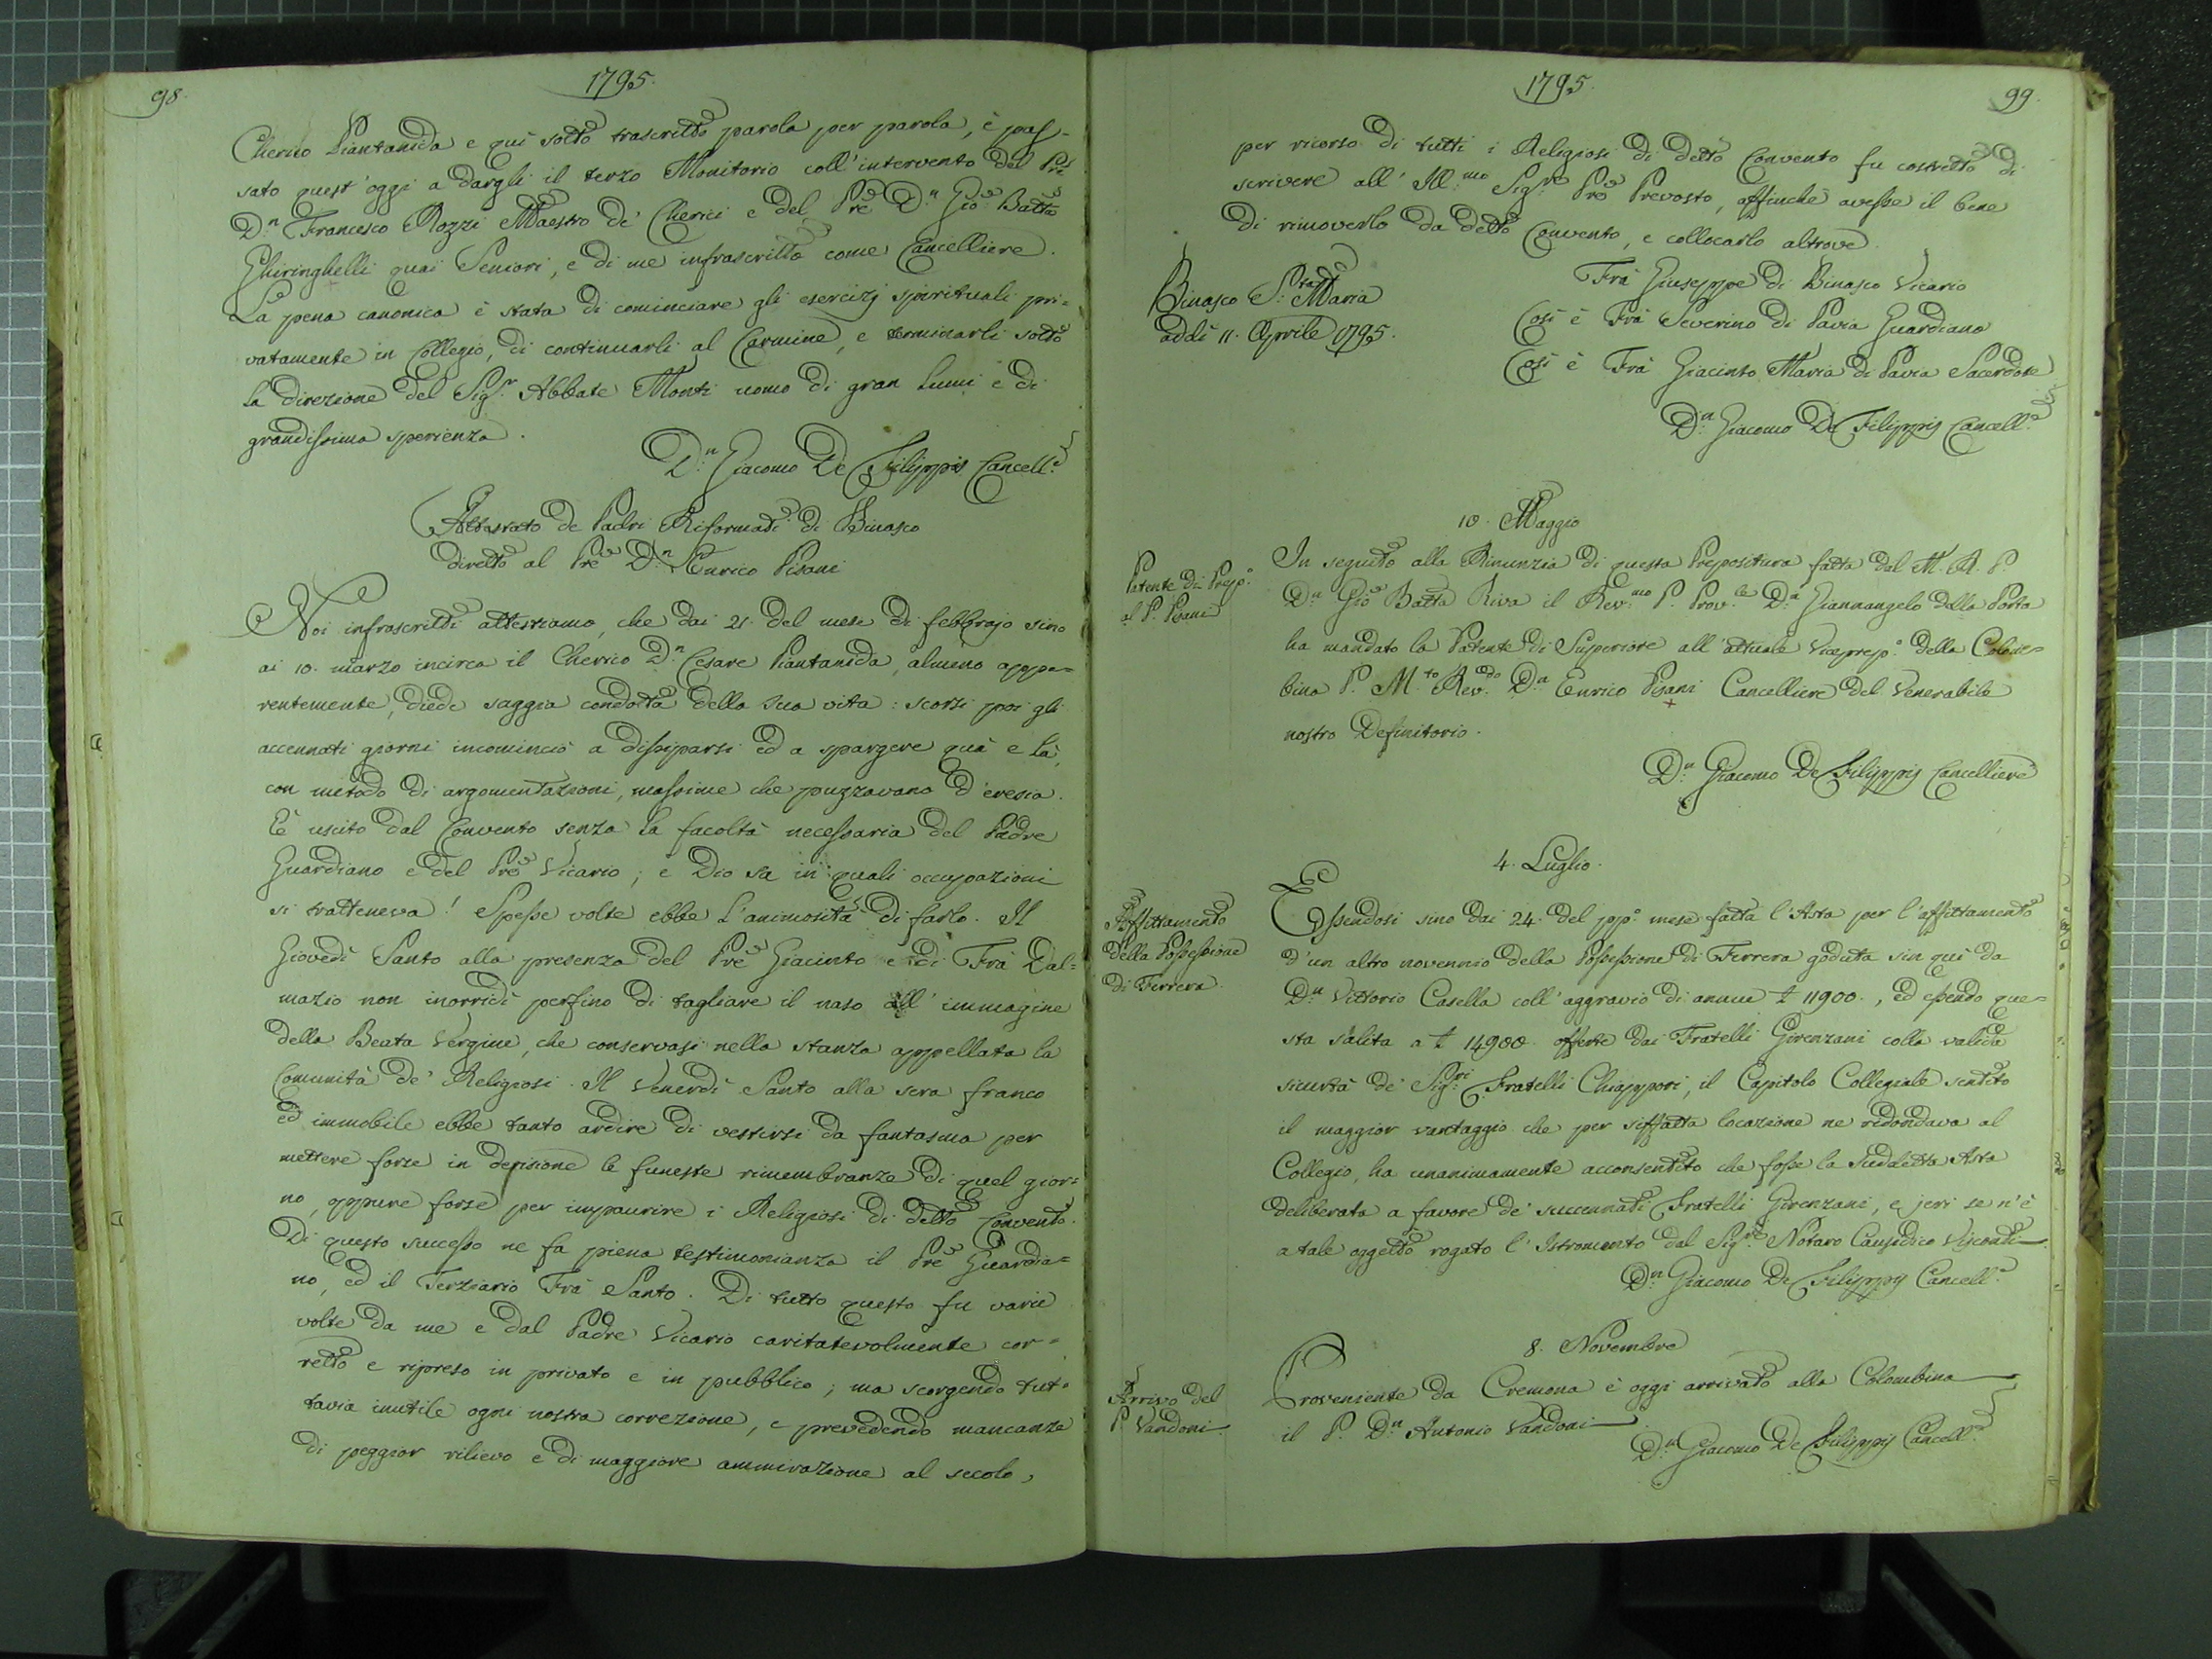 98.
1795.
Cherico Piantanida e quì sotto trascritto parola per parola, è pas-
sato quest'oggi a dargli il terzo Monitorio coll'intervento del Prē
D.n Francesco Rozzi Maestro de' Cherici e del Prē D.n Gio: Batta
Ghiringhelli quai Seniori, e di me infrascritto come Cancelliere.
La pena canonica è stata di cominciare gli esercizj spirituali pri=
vatamente in Collegio, di continuarli al Carmine, e terminarli sotto
la direzione del Sig.r Abbate Monti uomo di gran lumi e di
grandissima sperienza.
D.n Giacomo De Filippis Cancell.e
Attestato de Padri Riformati di Binasco
diretto al Prē D.n Enrico Pisani
Noi infrascritti attestiamo, che dai 21. del mese di febbrajo sino
ai 10. marzo incirca il Cherico D.n Cesare Piantanida, almeno appa=
rentemente, diede saggia condotta della sua vita: scorsi poi gli
accennati giorni incominciò a dissiparsi ed a spargere quà e là,
con metodo di argomentazioni, massime che puzzavano d'eresia.
È uscito dal Convento senza la facoltà necessaria del Padre
Guardiano e del Prē Vicario; e Dio sa in quali occupazioni
si tratteneva! Spesse volte ebbe l'animosità di farlo. Il
Giovedì Santo alla presenza del Prē Giacinto e di Frà Dal=
mazio non inorridì perfino di tagliare il naso all'immagine
della Beata Vergine, che conservasi nella stanza appellata la
Comunità de' Religiosi. Il Venerdì Santo alla sera franco
ed immobile ebbe tanto ardire di vestirsi da fantasma per
mettere forse in derisione le funeste rimembranze di quel gior=
no, oppure forse per impaurire i Religiosi di detto Convento.
Di questo successo ne fa piena testimonianza il Prē Guardia=
no, ed il Terziario Frà Santo. Di tutto questo fu varie
volte da me e dal Padre Vicario caritatevolmente cor=
retto e ripreso in privato e in pubblico; ma scorgendo tut=
tavia inutile ogni nostra correzione, e prevedendo mancanze
di peggior rilievo e di maggiore ammirazione al secolo,
1795.
99.
per ricorso di tutti i Religiosi di detto Convento fu costretto di
scrivere all' Ill.mo Sig.re Prē Prevosto, affinchè avesse il bene
di rimoverlo da detto Convento, e collocarlo altrove.
Frà Giuseppe di Binasco Vicario
Binasco S.ta Maria
addì 11. Aprile 1795.
Così è Frà Severino di Pavia Guardiano
Così è Frà Giacinto Maria di Pavia Sacerdote
D.n Giacomo De Filippis Cancell.e
10. Maggio
Patente di Prep.o
al P. Pisani
In seguito alla Rinunzia di questa Prepositura fatta dal M. R. P.
D.n Gio Batta Riva il Rev.mo P. Prov.le D.n Giannangelo della Porta
ha mandato la Patente di Superiore all'attuale Viceprep.o della Colom=
bina P. M.to Rev.do D.n Enrico Pisani Cancelliere del Venerabile
nostro Definitorio.
D.n Giacomo De Filippis Cancelliere
4. Luglio.
Affittamento
della Possessione
di Ferrera.
Essendosi sino dai 24. del pp.o mese fatta l'Asta per l'affittamento
d'un altro novennio della Possessione di Ferrera goduta sin quì da
D.n Vittorio Casella coll'aggravio di annue £ 11900., ed essendo que=
sta salita a £ 14900. offerte dai Fratelli Girenzani colla valida
sicurtà de' Sig.ri Fratelli Chiappori, il Capitolo Collegiale sentito
il maggior vantaggio che per siffatta locazione ne ridondava al
Collegio, ha unanimamente acconsentito che fosse la suddetta Asta
deliberata a favore de' succennati Fratelli Girenzani, e jeri se n'è
a tale oggetto rogato l'Istromento dal Sig.re Notaro Causidico Visconti
D.n Giacomo De Filippis Cancell.e
8. Novembre
Arrivo del
P. Vandoni
Proveniente da Cremona è oggi arrivato alla Colombina
il P. D.n Antonio Vandoni
D.n Giacomo De Filippis Cancell.e